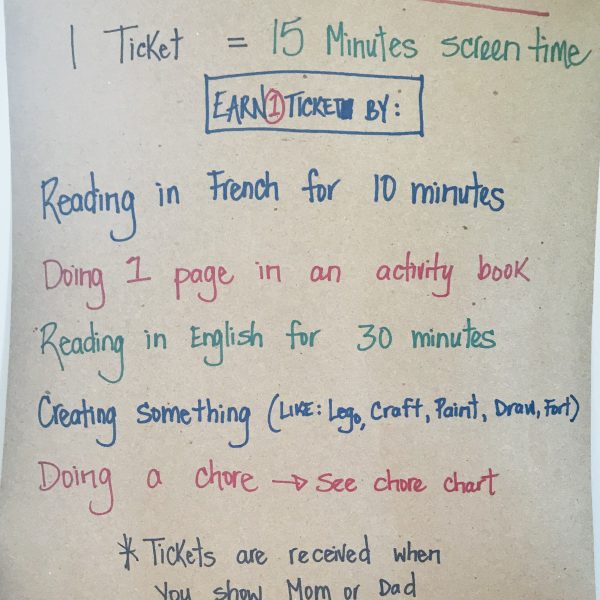 1 Ticket = 15 Minutes screen time
EARN 1 TICKET BY:
Reading in French for 10 minutes
Doing 1 page in an activity book
Reading in English for 30 minutes
Creating something (LIKE: Lego, Craft, Paint, Draw, Fort)
Doing a chore → see chore chart
* Tickets are received when
You show Mom or Dad